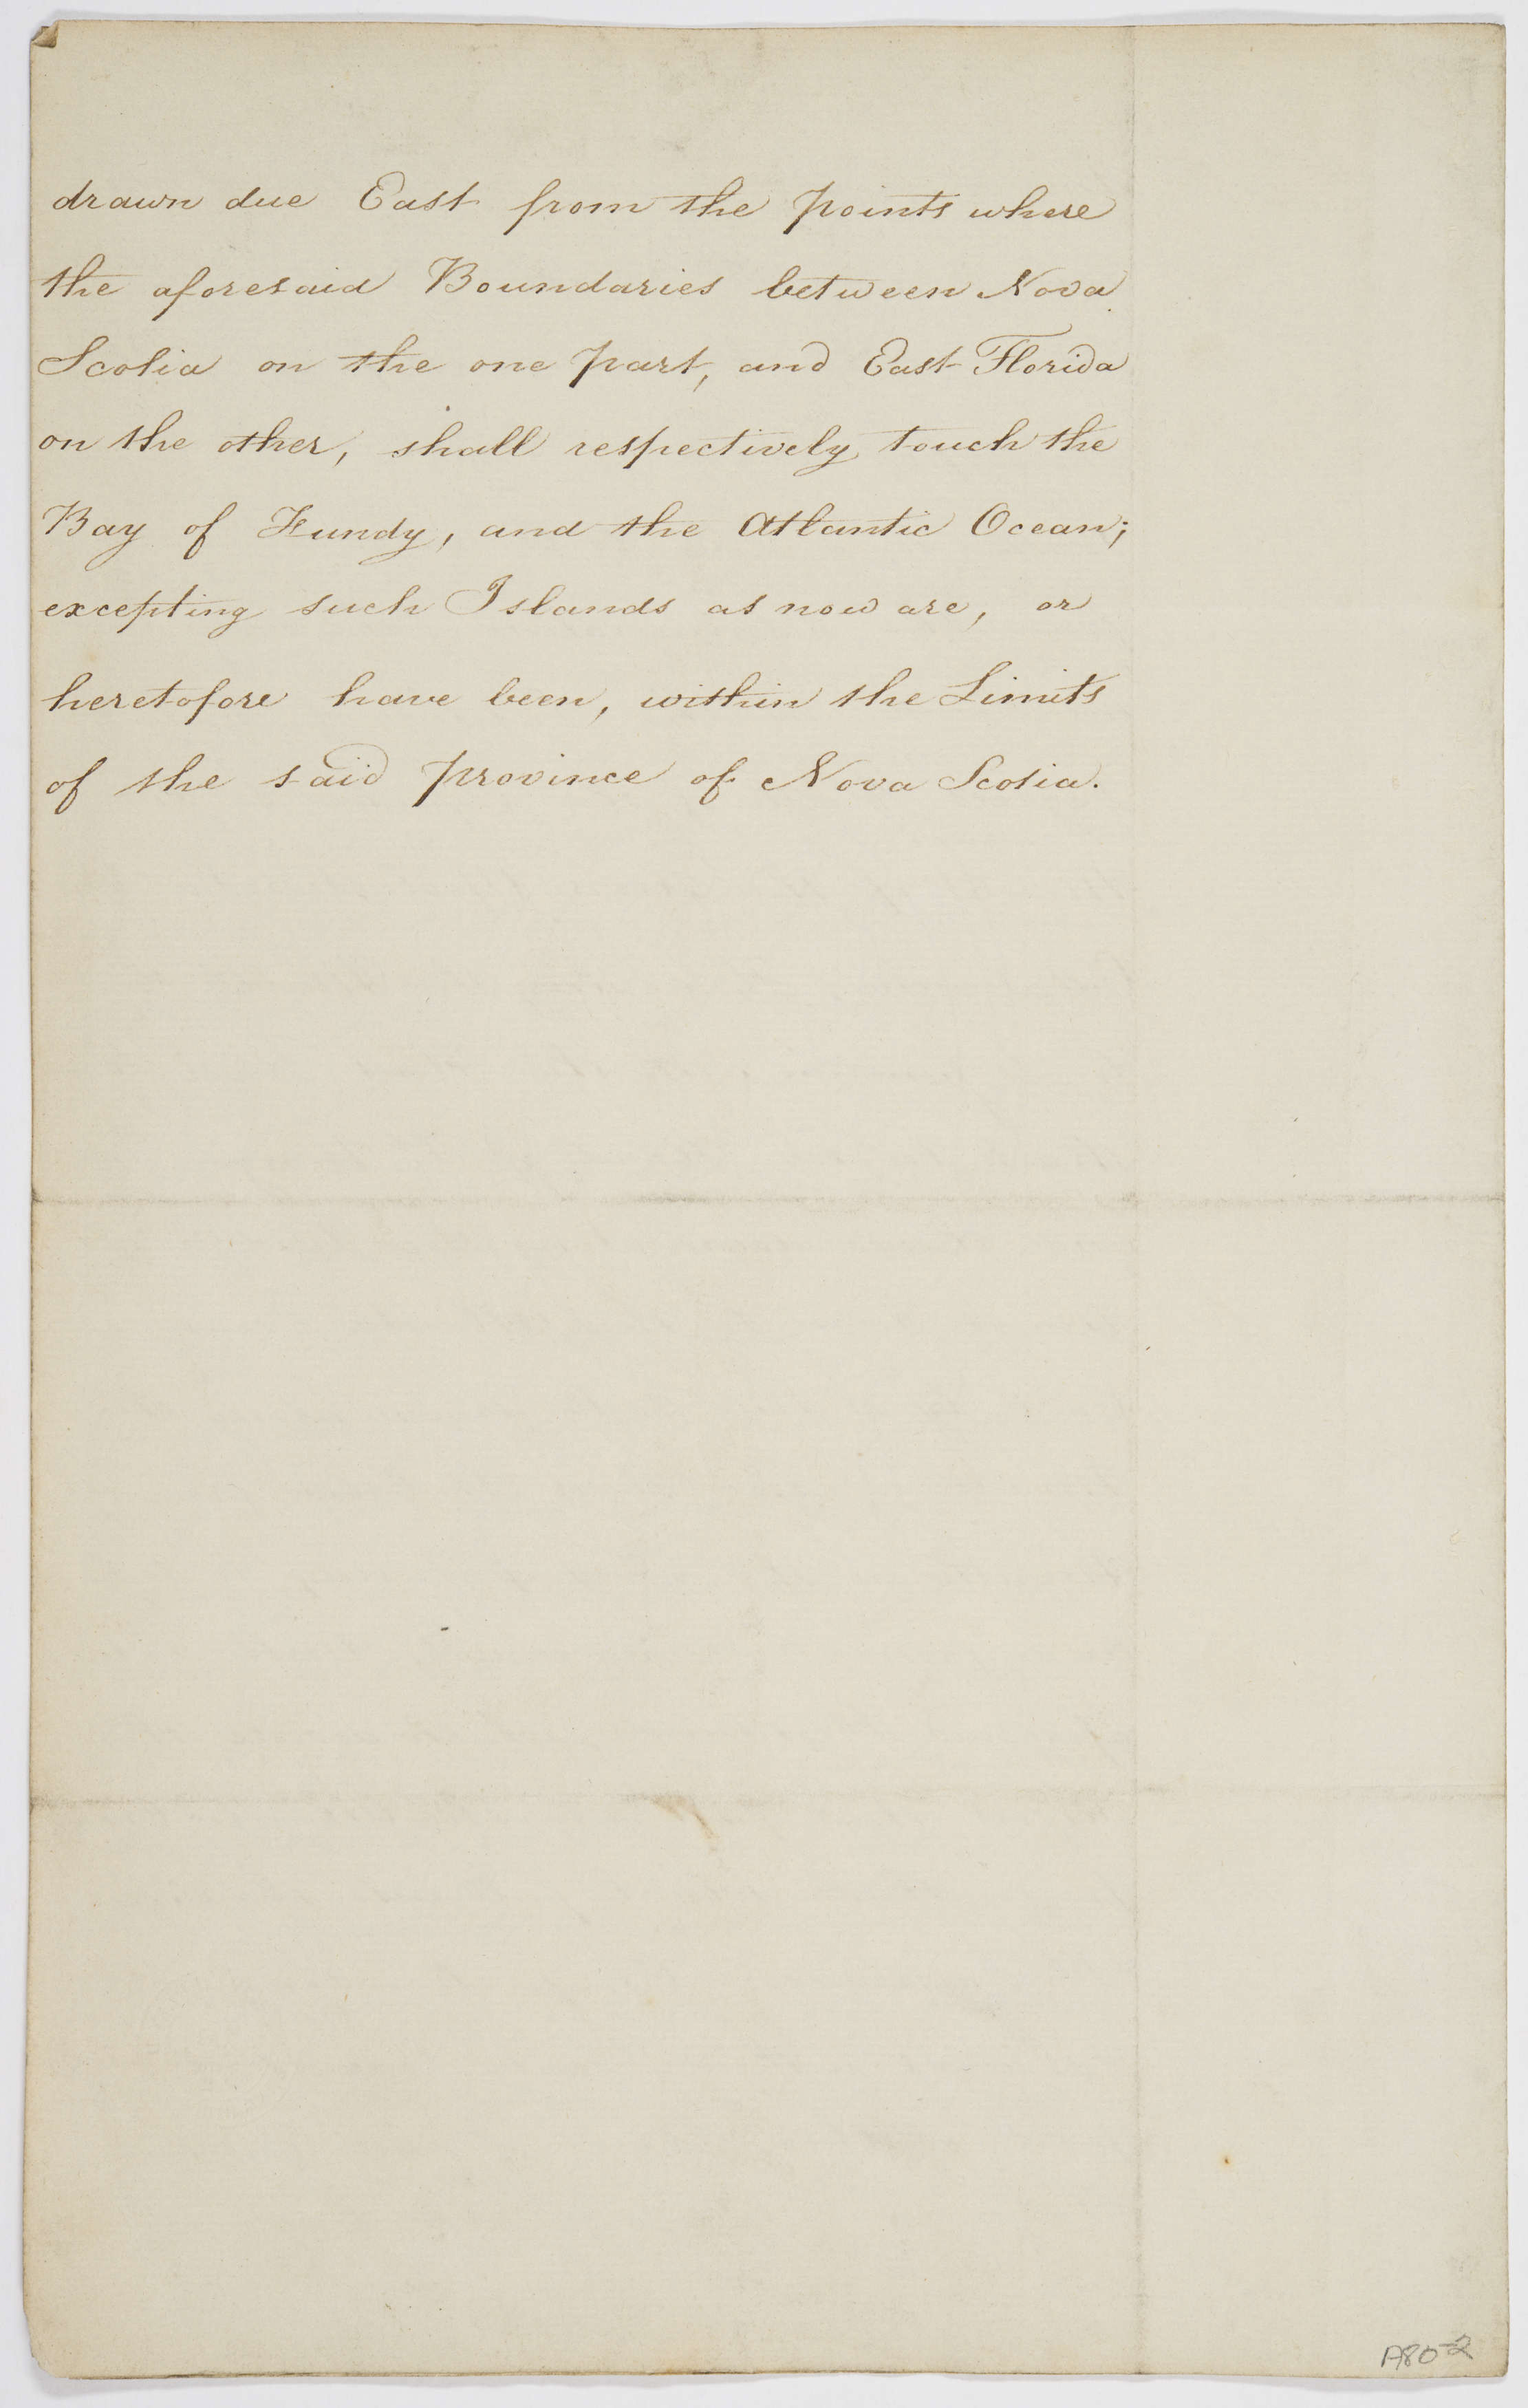 drawn due East from the points where
the aforesaid Boundaries between Nova
Scotia on the one part, and East Florida
on the other, shall respectively touch the
Bay of Fundy, and the Atlantic Ocean;
excepting such Islands as now are, or
heretofore have been, within the Limits
of the said province of Nova Scotia.
A80-2